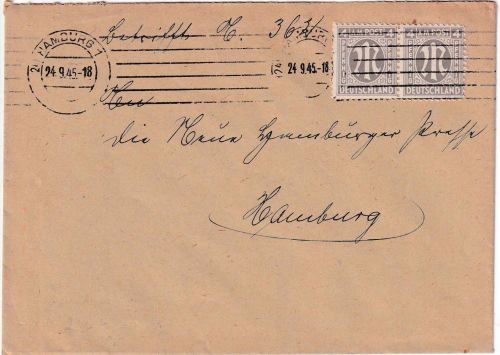 24 HAMBURG 1
24.9.45-18
Betrifft N. 36
24 HAM
24.9.45-18
4 A.M. POST 4
M
DEUTSCHLAND
4 A.M. POST 4
M
DEUTSCHLAND
An
die Neue Hamburger Presse
Hamburg